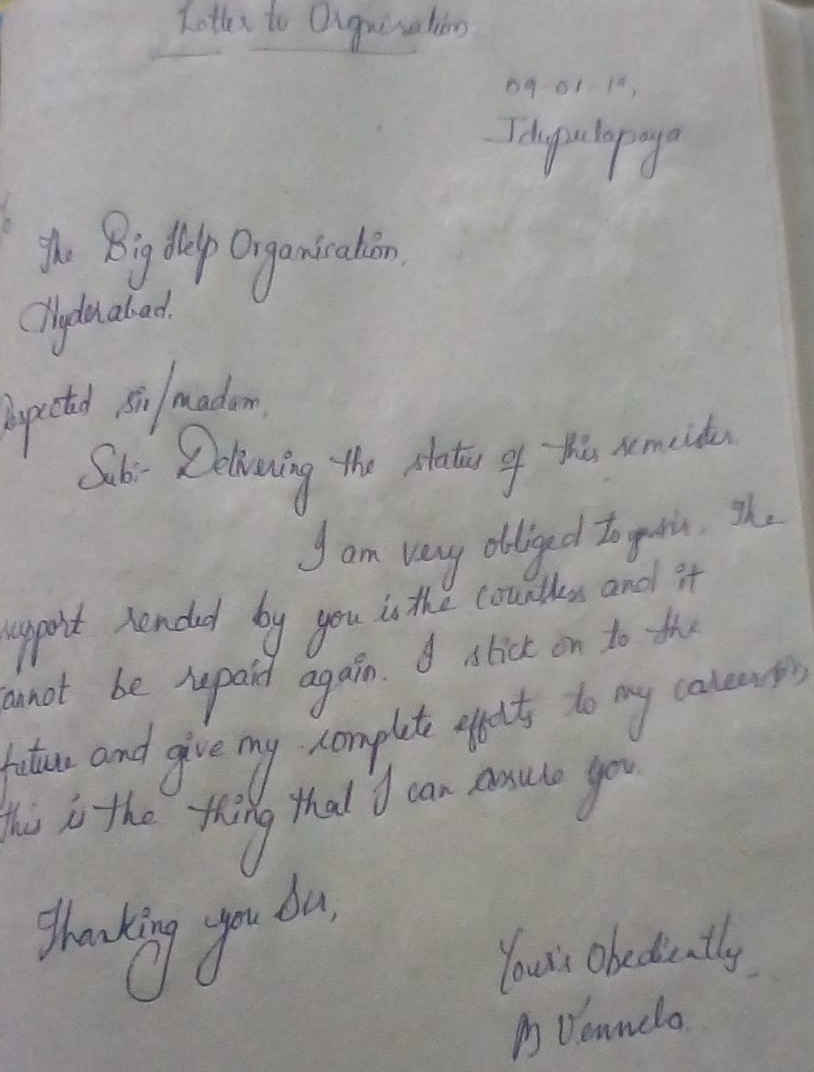 Letter to Orgnisation
09-01-19,
Idupulapaya
The Big Help Organisation,
Hyderabad.
Respected sir/madam,
Sub:- Delivering the status of this semeister
I am very obliged to sir. The
support rended by you is the countless and it
cannot be repaid again. I stick on to the
future and give my complete efforts to my career
this is the thing that I can assure you.
Thanking you Sir,
Your's Obediently
Vennela.